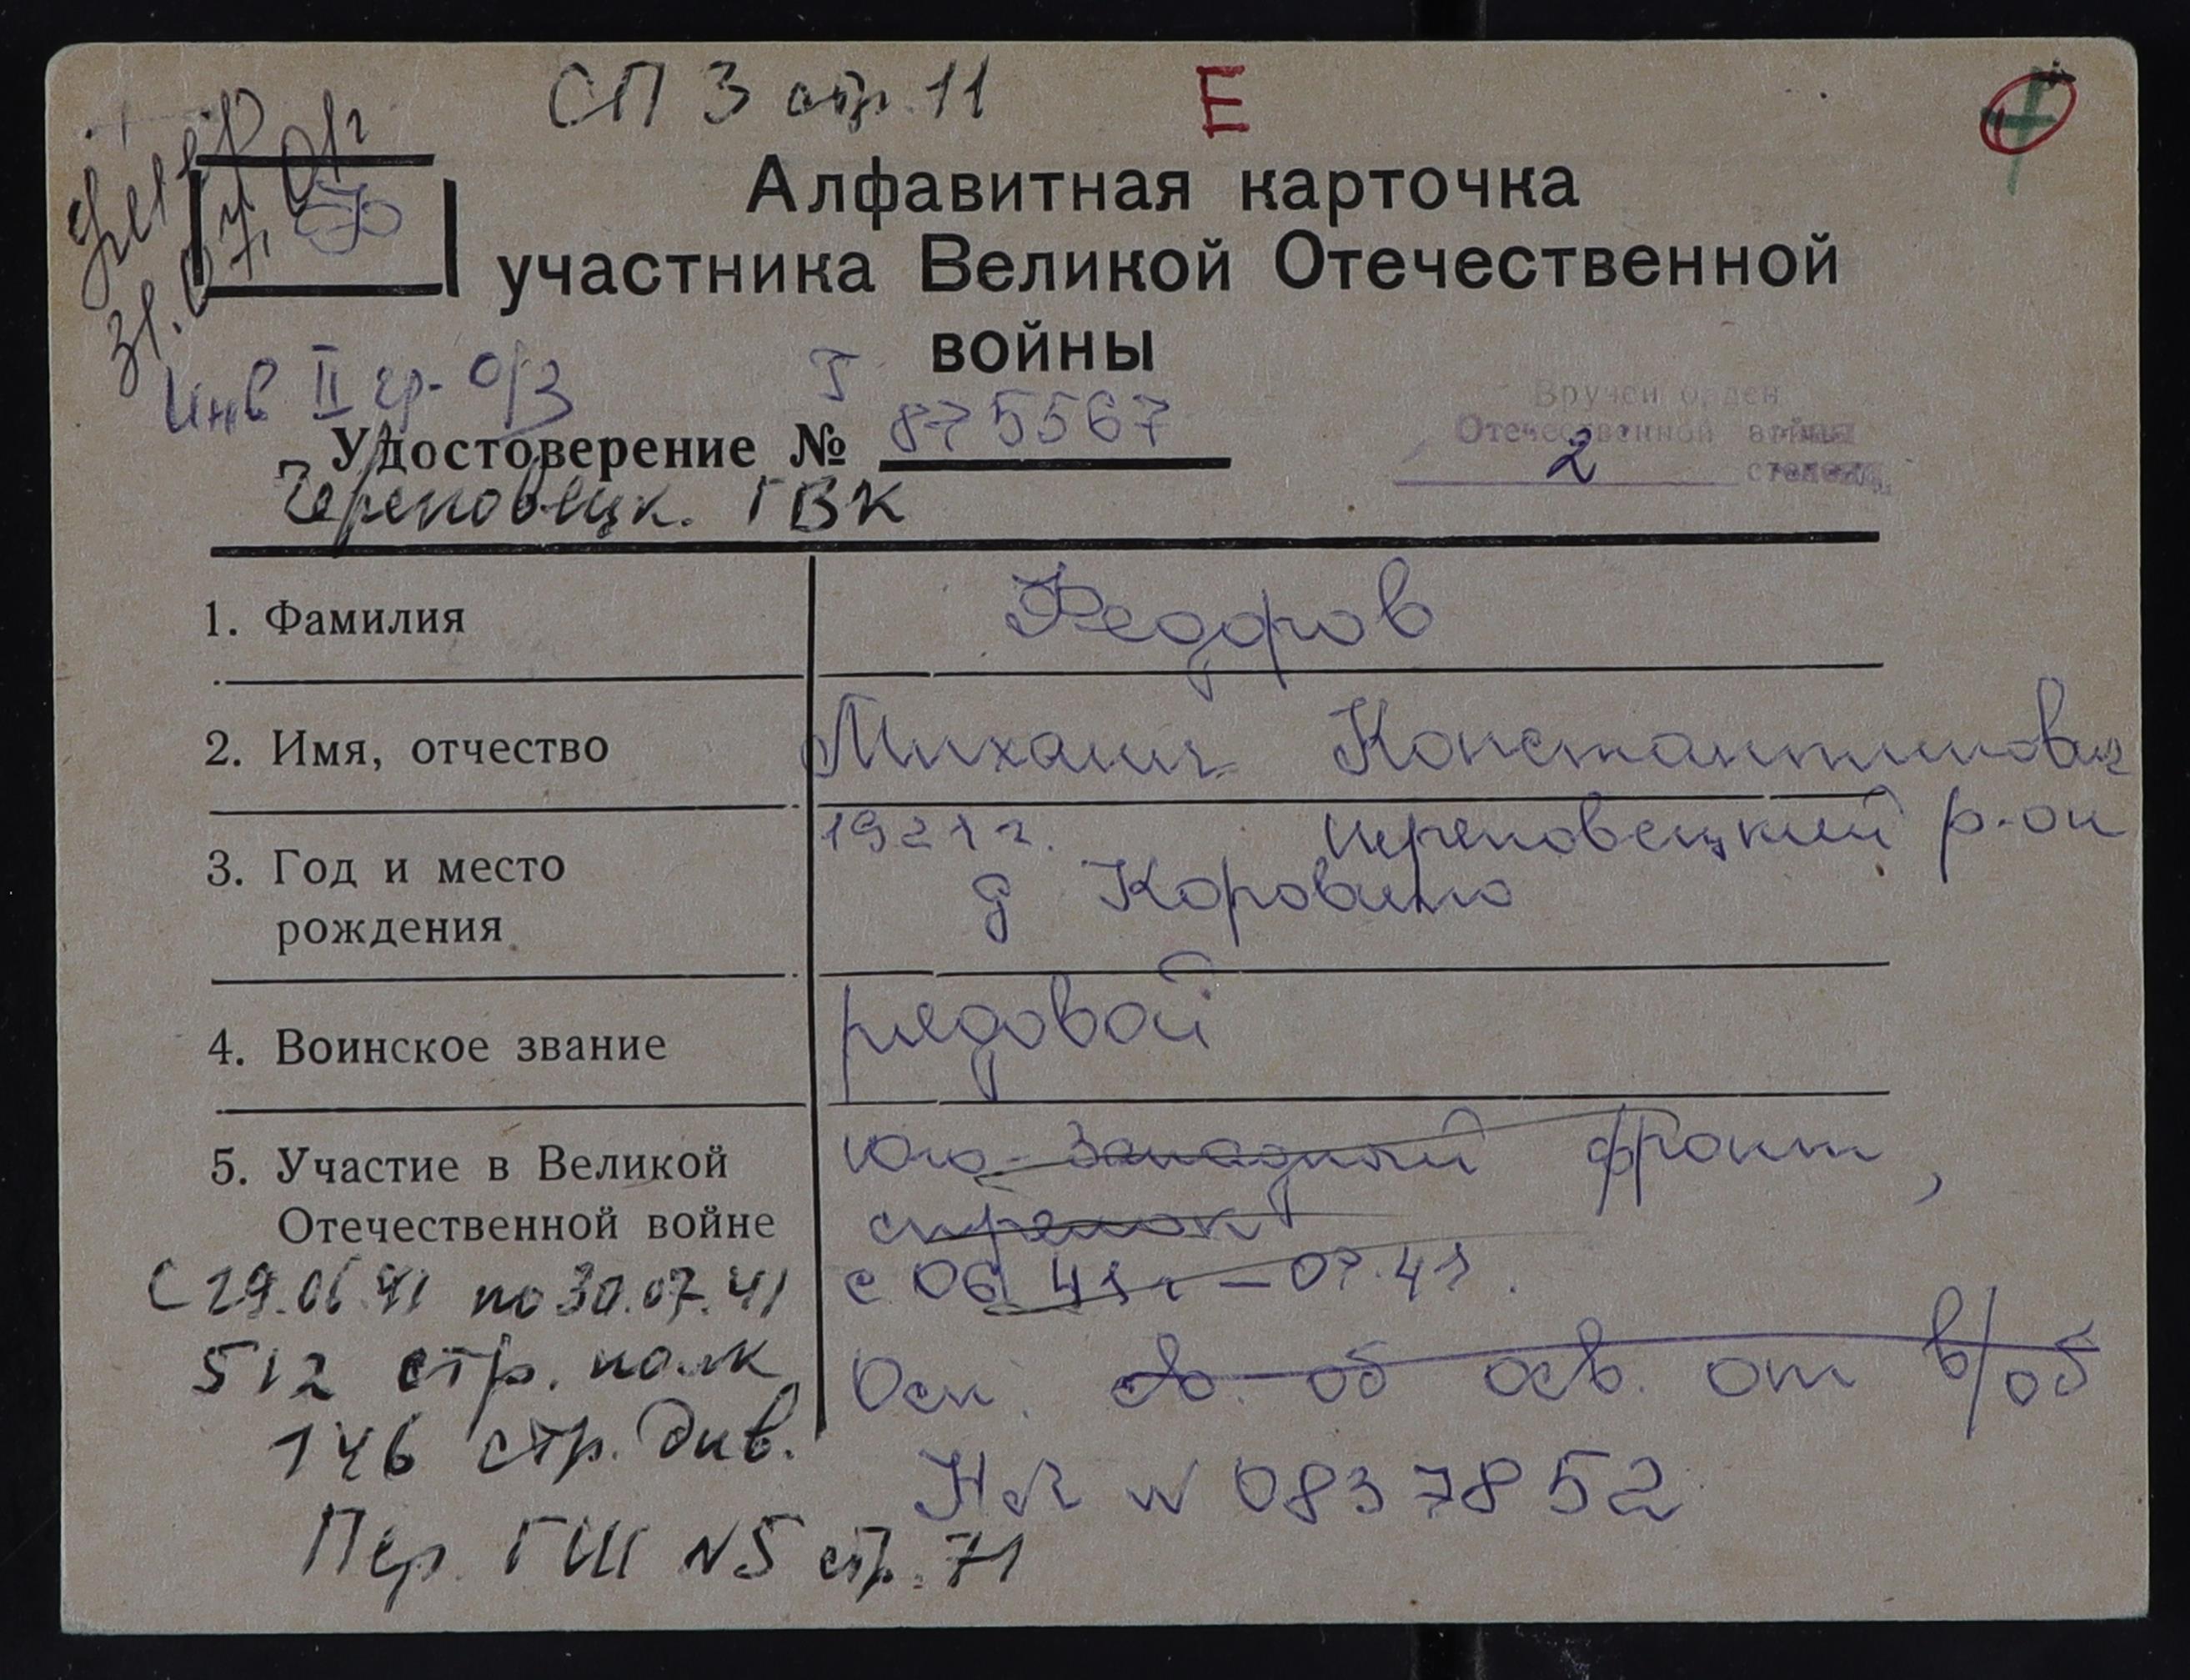 СП 3 стр. 11 Е
умер
31.07.01г
Ф
Алфавитная карточка
участника Великой Отечественной
войны
Инв II гр. о/з
Удостоверение № Г 875567
Вручен орден
Отечественной войны
2 степени
Череповецк. ГВК
1. Фамилия Федоров
2. Имя, отчество Михаил Константинович
3. Год и место 1921 г. Череповецкий р-он
рождения д Коровино
4. Воинское звание рядовой
5. Участие в Великой Юго-Западный фронт,
Отечественной войне стрелок
с 29.06.41 по 30.07.41 с 06 41 г – 07.41.
512 стр. полк Осн. св. об осв. от в/об
146 стр. див.
НЛ № 0837852
Пер. ГШ №5 стр. 71